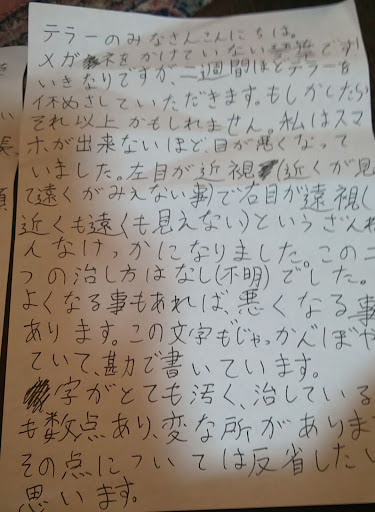 テラーのみなさんこんにちは。
メガネをかけていない です!
いきなりですが、一週間ほどテラーを
休めさしていただきます。もしかしたら
それ以上かもしれません。私はスマ
ホが出来ないほど、目が悪くなって
いました。左目が近視(近くが見
て遠くがみえない事)で右目が遠視(
近くも遠くも見えない)というざんね
んなけっかになりました。この二
つの治し方はなし(不明)でした。
よくなる事もあれば、悪くなる事
あります。この文字もじゃっかんぼや
ていて、勘で書いています。
字がとても汚く、治している
も数点あり、変な所がありま
その点については反省したい
思います。